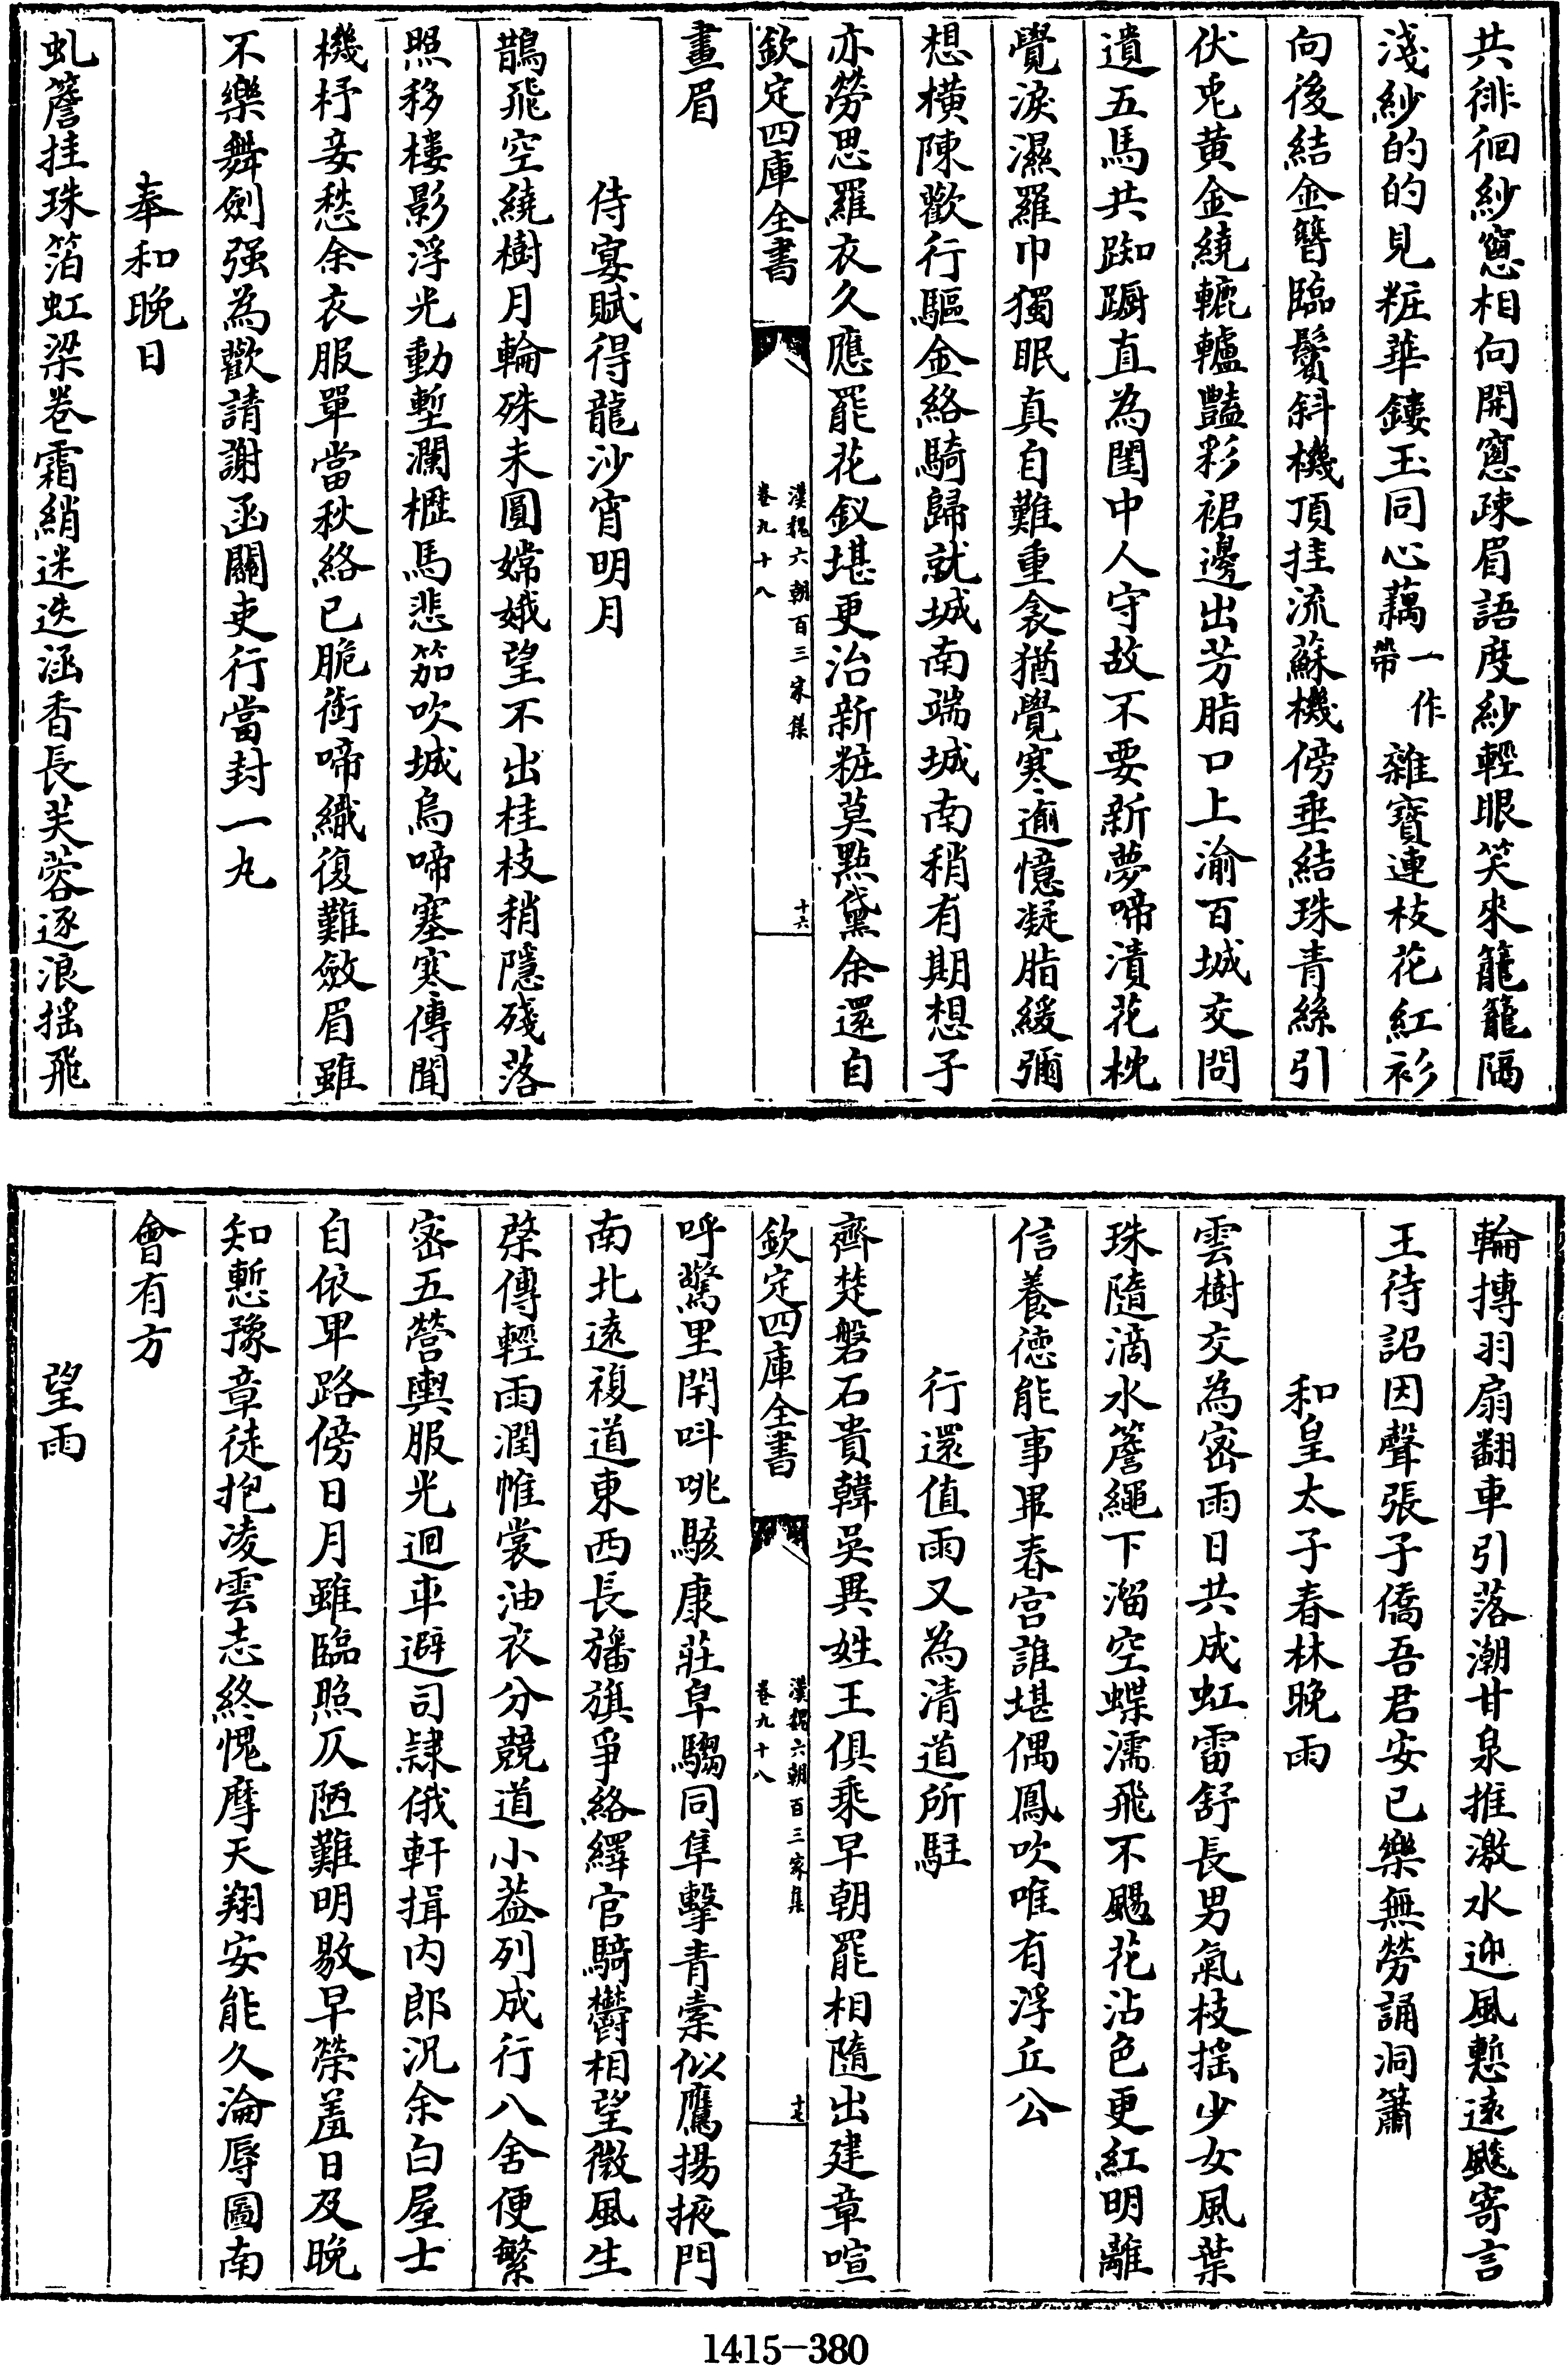 共徘徊紗窻相向開窻疎眉語度紗輕眼笑來籠籠隔
淺紗的的見粧華鏤玉同心藕一作帶雜寶連枝花紅衫
向後結金簪臨鬢斜機頂挂流蘇機傍垂結珠青絲引
伏兎黄金繞轆轤豔彩裙邊出芳脂口上渝百城交問
遺五馬共踟蹰直為閨中人守故不要新夢啼漬花枕
覺淚濕羅巾獨眠真自難重衾猶覺寒逾憶凝脂緩彌
想橫陳歡行驅金絡騎歸就城南端城南稍有期想子
亦勞思羅衣久應罷花釵堪更治新粧莫點黛余還自
欽定四庫全書 漢魏六朝百三家集 卷九十八 十六
畫眉
侍宴賦得龍沙宵明月
鵲飛空繞樹月輪殊未圓嫦娥望不出桂枝稍隱殘落
照移樓影浮光動塹瀾櫪馬悲笳吹城烏啼塞寒傳聞
機杼妾愁余衣服單當秋絡已脆銜啼織復難斂眉雖
不樂舞劍强為歡請謝函關吏行當封一丸
奉和晩日
虬簷挂珠箔虹梁卷霜綃迷迭涵香長芙蓉逐浪揺飛
輪摶羽扇翻車引落潮甘泉推激水迎風慙遠飈寄言
王待詔因聲張子僑吾君安已樂無勞誦洞簫
和皇太子春林晚雨
雲樹交為密雨日共成虹雷舒長男氣枝揺少女風葉
珠隨滴水簷繩下溜空蝶濡飛不颺花沾色更紅明離
信養徳能事畢春宫誰堪偶鳳吹唯有浮丘公
行還值雨又為清道所駐
齊楚磐石貴韓吳異姓王俱乘早朝罷相隨出建章喧
欽定四庫全書 漢魏六朝百三家集 卷九十八 十七
呼驚里閈呌咷駭康莊皁騶同隼擊青橐似鷹揚掖門
南北遠複道東西長旛旗爭絡繹官騎鬱相望微風生
棨傳輕雨潤帷裳油衣分競道小葢列成行八舍便繁
密五營輿服光迴車避司隸俄軒揖内郎况余白屋士
自依卑路傍日月雖臨照仄陋難明敭早榮羞日及晚
知慙豫章徒抱凌雲志終愧摩天翔安能久淪辱圖南
會有方
望雨
1415-380